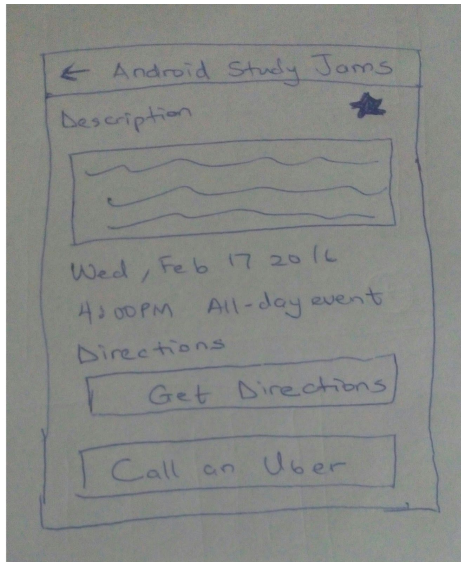 ← Android Study Jams
Description
Wed, Feb 17 2016
4:00PM All-day event
Directions
Get Directions
Call an Uber